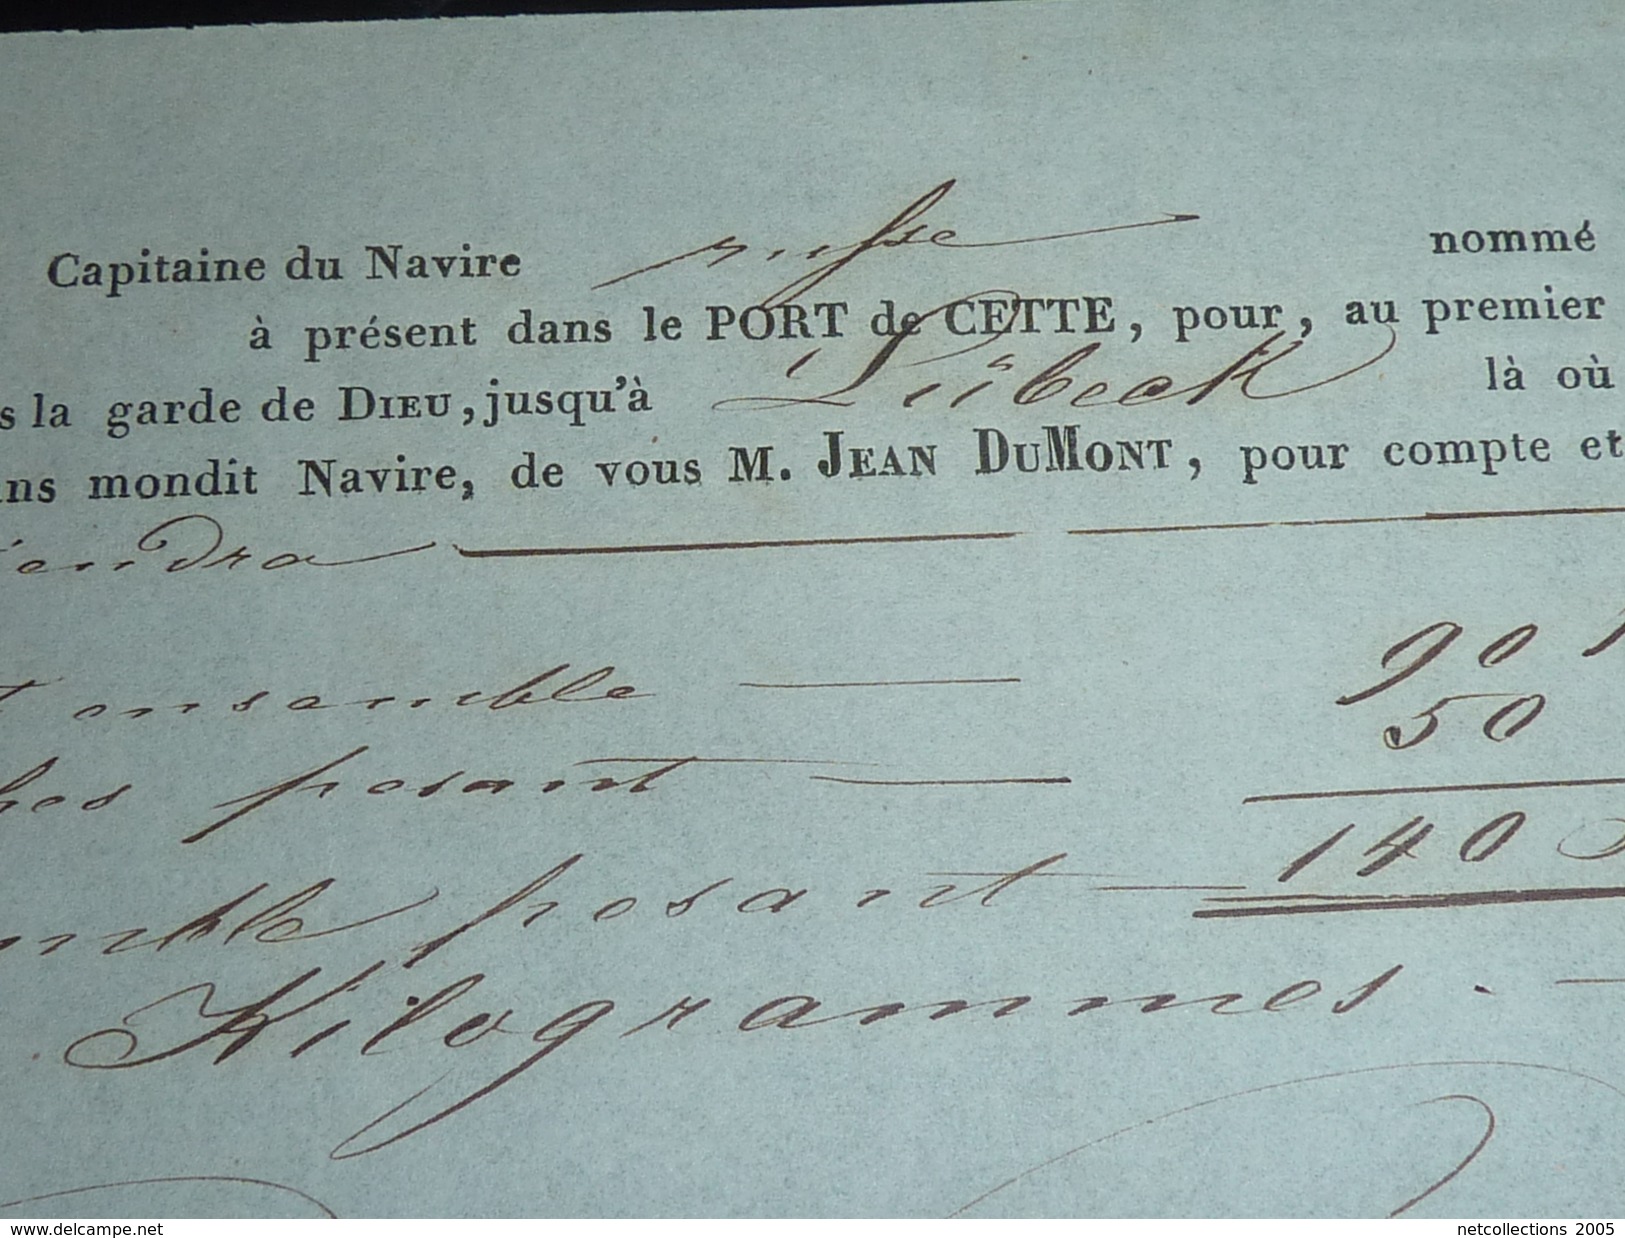 Capitaine du Navire russe nommé
à présent dans le PORT de CETTE, pour, au premier
s la garde de DIEU, jusqu'à Lübeck là où
ns mondit Navire, de vous M. JEAN DUMONT, pour compte et
iendra
ensemble 90
pesant 50
mble pesant 140
Kilogrammes.
www.delcampe.net
netcollections 2005